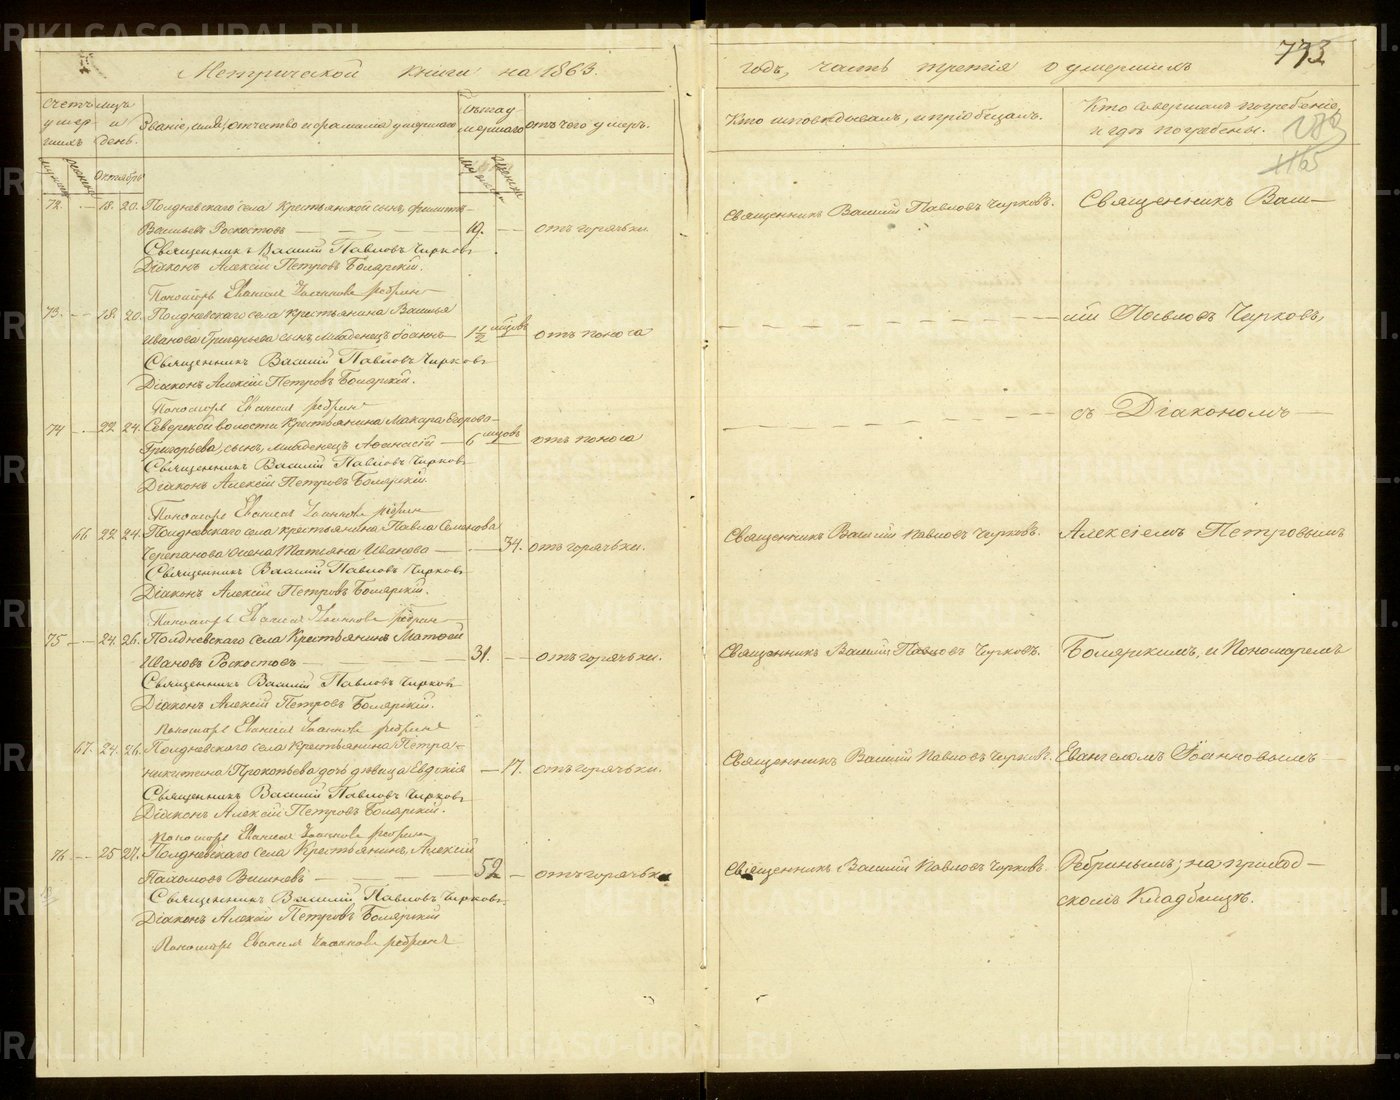 Метрической книги на 1863.
Счетъ умершихъ
мужеска
женска
мцъ и день.
Октябрь
Званіе, имя, отчество и фамилія умершаго
Лѣта умершаго
мужеска
женска
отъ чего умеръ.
72. — 18. 20. Полдневскаго села Крестьянской сынъ, Филиппъ
Васильевъ Роскостовъ — 19. — отъ горячки
Священникъ Василій Павловъ Чирковъ
Діаконъ Алексій Петровъ Боярскій.
Пономарь Евангелъ Іоанновъ Ребринъ
73. — 18. 20. Полдневскаго села Крестьянина Василья
Иванова Григорьева сынъ, младенецъ Іоаннъ — 1 1/2 мцовъ отъ поноса
Священникъ Василій Павловъ Чирковъ
Діаконъ Алексій Петровъ Боярскій.
Пономарь Евангелъ Ребринъ
74 — 22 24. Северской волости Крестьянина Макара Егорова
Григорьева, сынъ, младенецъ Афанасій — 6 мцовъ отъ поноса
Священникъ Василій Павловъ Чирковъ
Діаконъ Алексій Петровъ Боярскій.
Пономарь Евангелъ Іоанновъ Ребринъ
66 22 24. Полдневскаго села крестьянина Павла Семенова
Черепанова жена Татьяна Иванова — 34. отъ горячки.
Священникъ Василій Павловъ Чирковъ
Діаконъ Алексій Петровъ Боярскій.
Пономарь Евангелъ Іоанновъ Ребринъ
75 — 24. 26. Полдневскаго села Крестьянинъ Матѳей
Ивановъ Роскостовъ — 31. — отъ горячки.
Священникъ Василій Павловъ Чирковъ
Діаконъ Алексій Петровъ Боярскій.
Пономарь Евангелъ Іоанновъ Ребринъ
67. 24. 26. Полдневскаго села крестьянина Петра
Никитина Прокопьева дочь дѣвица Евдокія — 17. отъ горячки.
Священникъ Василій Павловъ Чирковъ
Діаконъ Алексій Петровъ Боярскій.
Пономарь Евангелъ Іоанновъ Ребринъ
76 — 25 27. Полдневскаго села Крестьянинъ, Алексій
Пахомовъ — 52 — отъ горячк
Священникъ Василій Павловъ Чирковъ
Діаконъ Алексій Петровъ Боярскій
Пономарь Евангелъ Іоанновъ Ребринъ
773
годъ, часть третія о умершихъ
Кто исповѣдывалъ, и пріобщалъ.
Кто совершалъ погребеніе, и гдѣ погребены.
1165
Священникъ Василій Павловъ Чирковъ. Священникъ Васи-
лій Павловъ Чирковъ,
съ Діакономъ
Священникъ Василій Павловъ Чирковъ. Алексіемъ Петровымъ
Священникъ Василій Павловъ Чирковъ. Боярскимъ, и Пономаремъ
Священникъ Василій Павловъ Чирковъ. Евангеломъ Іоанновымъ
Священникъ Василій Павловъ Чирковъ. Ребринымъ; на приход-
скомъ Кладбищѣ.
METRIKI.GASO-URAL.RU